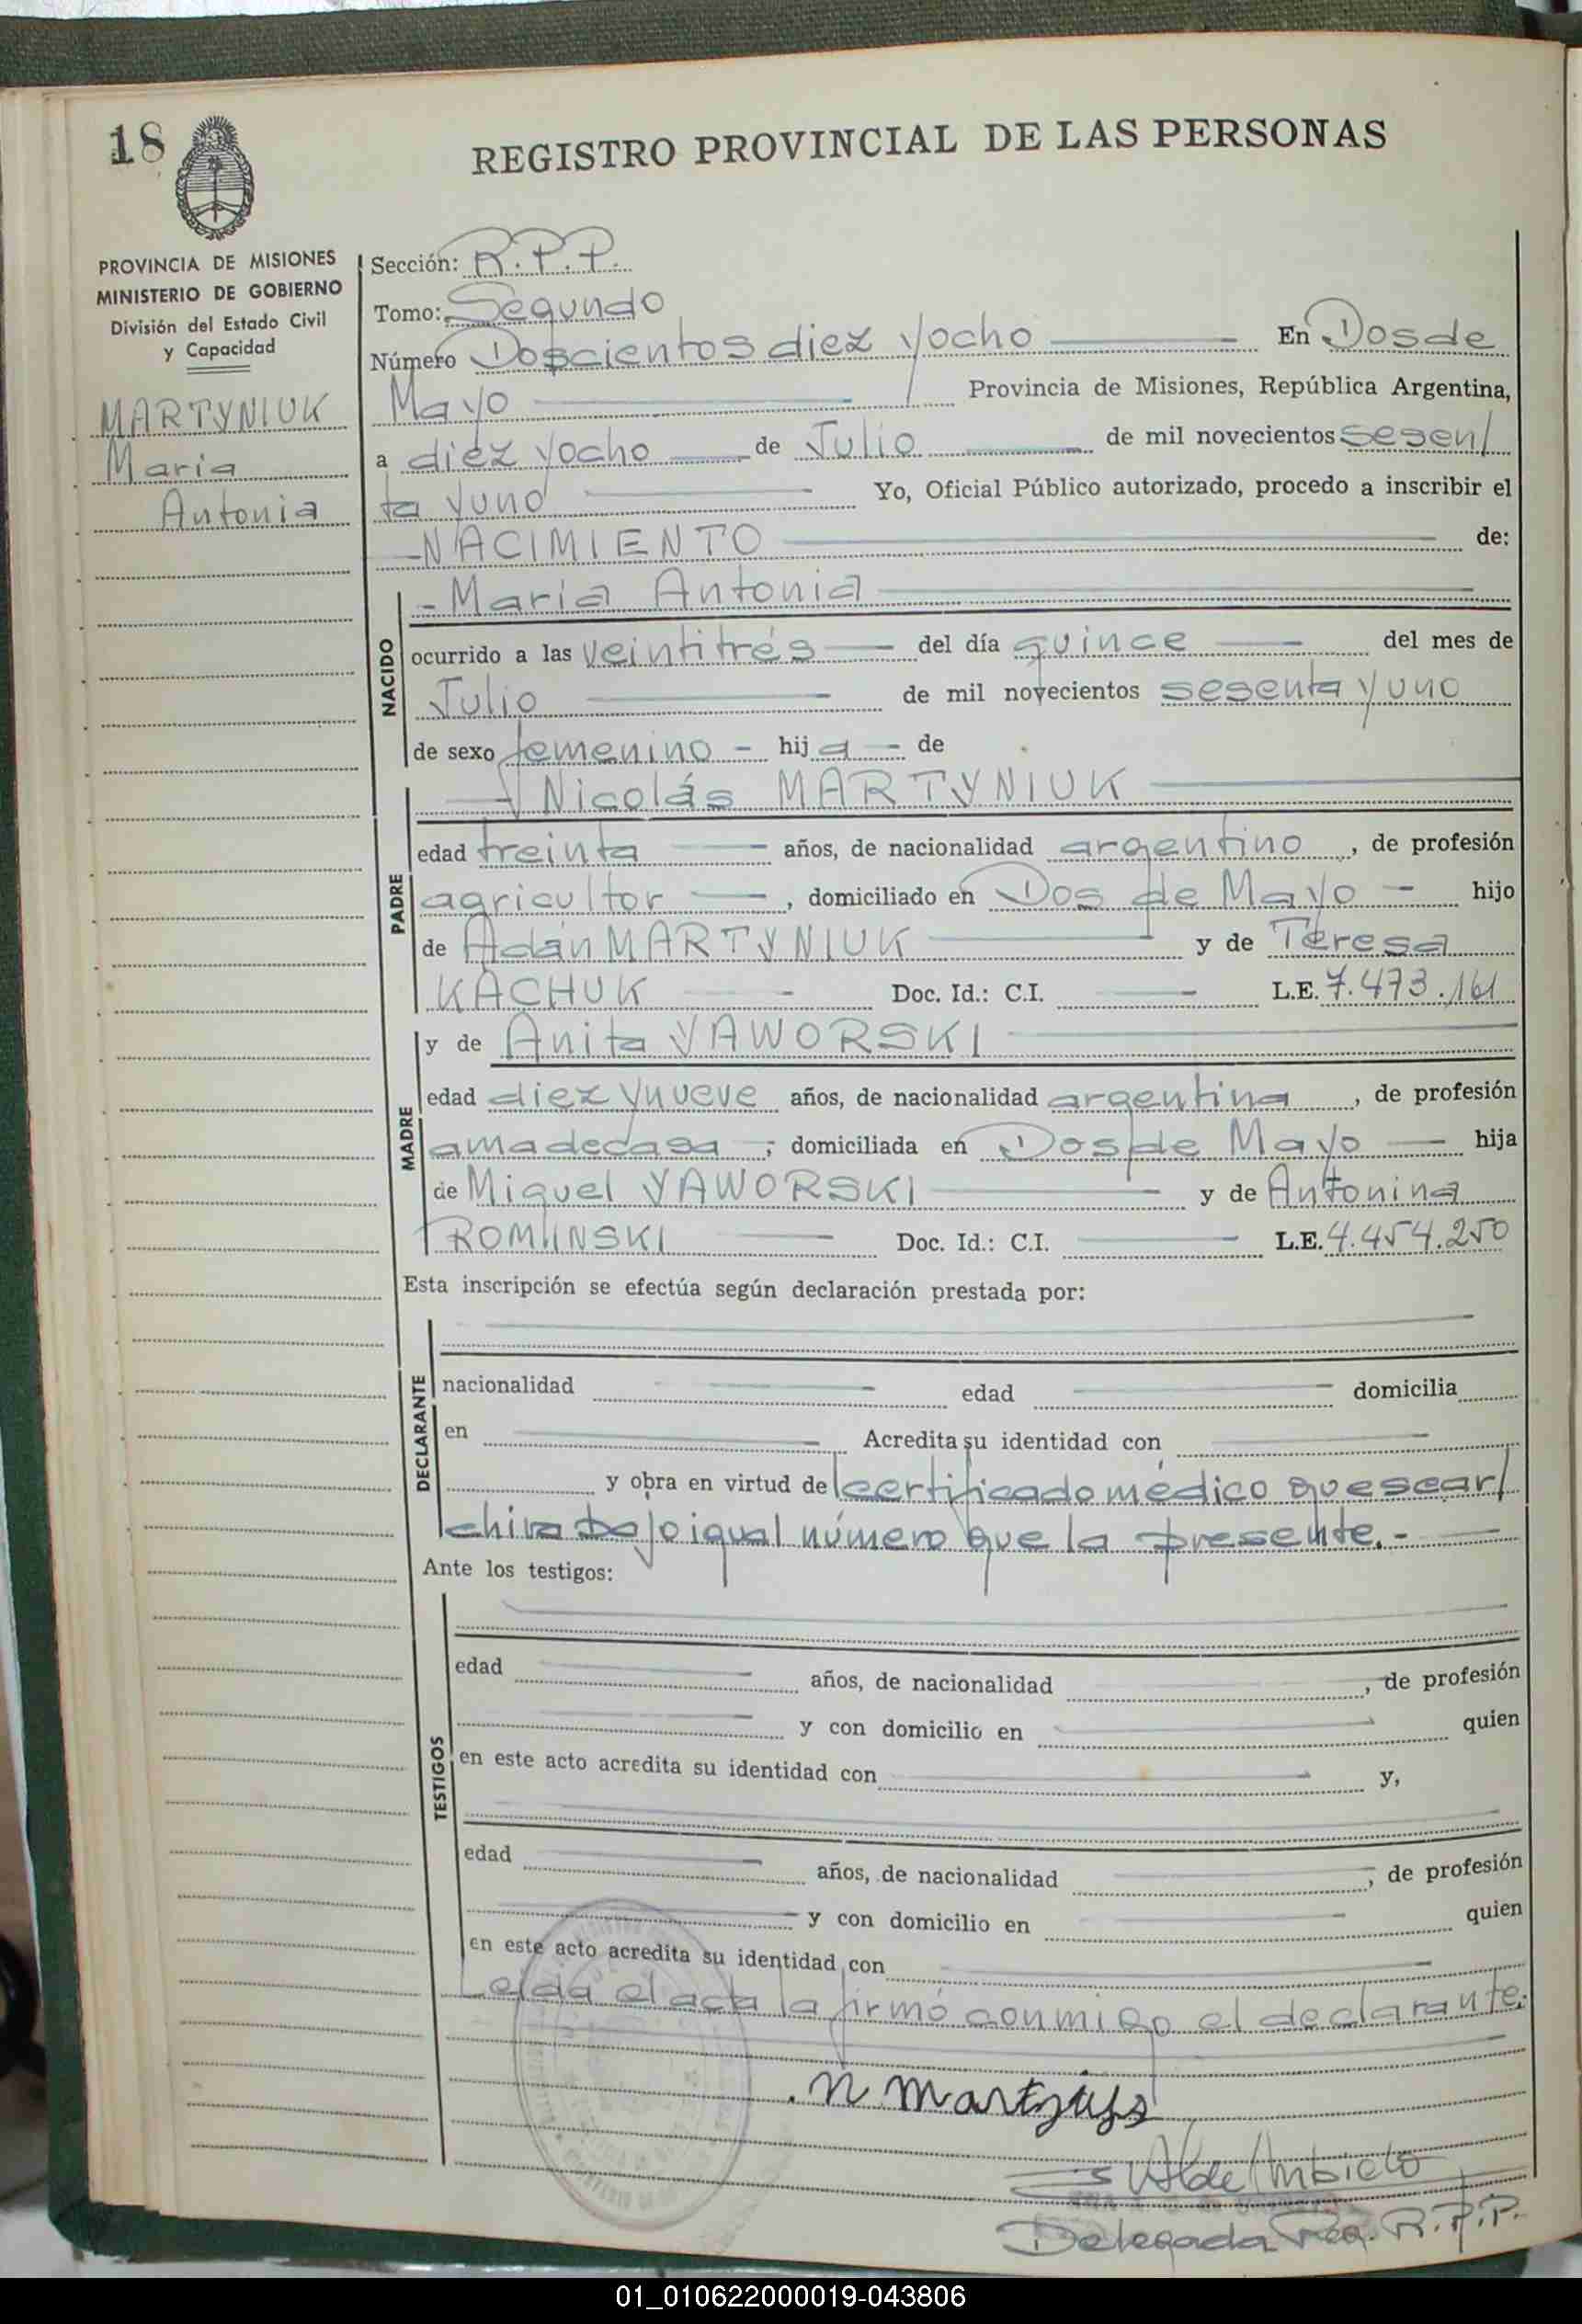 18
REGISTRO PROVINCIAL DE LAS PERSONAS
PROVINCIA DE MISIONES
MINISTERIO DE GOBIERNO
División del Estado Civil
y Capacidad
MARTYNIUK
María
Antonia
Sección: R.P.P.
Tomo: Segundo
Número Doscientos diez y ocho En Dos de
Mayo Provincia de Misiones, República Argentina,
a diez y ocho de Julio de mil novecientos sesen/
ta y uno Yo, Oficial Público autorizado, procedo a inscribir el
NACIMIENTO de:
- María Antonia
NACIDO
ocurrido a las veintitrés del día quince del mes de
Julio de mil novecientos sesenta y uno
de sexo femenino - hij a - de
Nicolás MARTYNIUK
PADRE
edad treinta años, de nacionalidad argentino, de profesión
agricultor, domiciliado en Dos de Mayo - hijo
de Adán MARTYNIUK y de Teresa
KACHUK Doc. Id.: C.I. L.E. 7.473.161
MADRE
y de Anita YAWORSKI
edad diez y nueve años, de nacionalidad argentina, de profesión
ama de casa; domiciliada en Dos de Mayo hija
de Miguel YAWORSKI y de Antonina
ROMINSKI Doc. Id.: C.I. L.E. 4.454.250
Esta inscripción se efectúa según declaración prestada por:
DECLARANTE
nacionalidad edad domicilia
en Acredita su identidad con
y obra en virtud de certificado médico que se ar/
chiva bajo igual número que la presente.-
Ante los testigos:
TESTIGOS
edad años, de nacionalidad , de profesión
y con domicilio en quien
en este acto acredita su identidad con y,
edad años, de nacionalidad , de profesión
y con domicilio en quien
en este acto acredita su identidad con
Leída el acta la firmó conmigo el declarante.
N. Martyniuk
Delegada Reg. R.P.P.
01_010622000019-043806